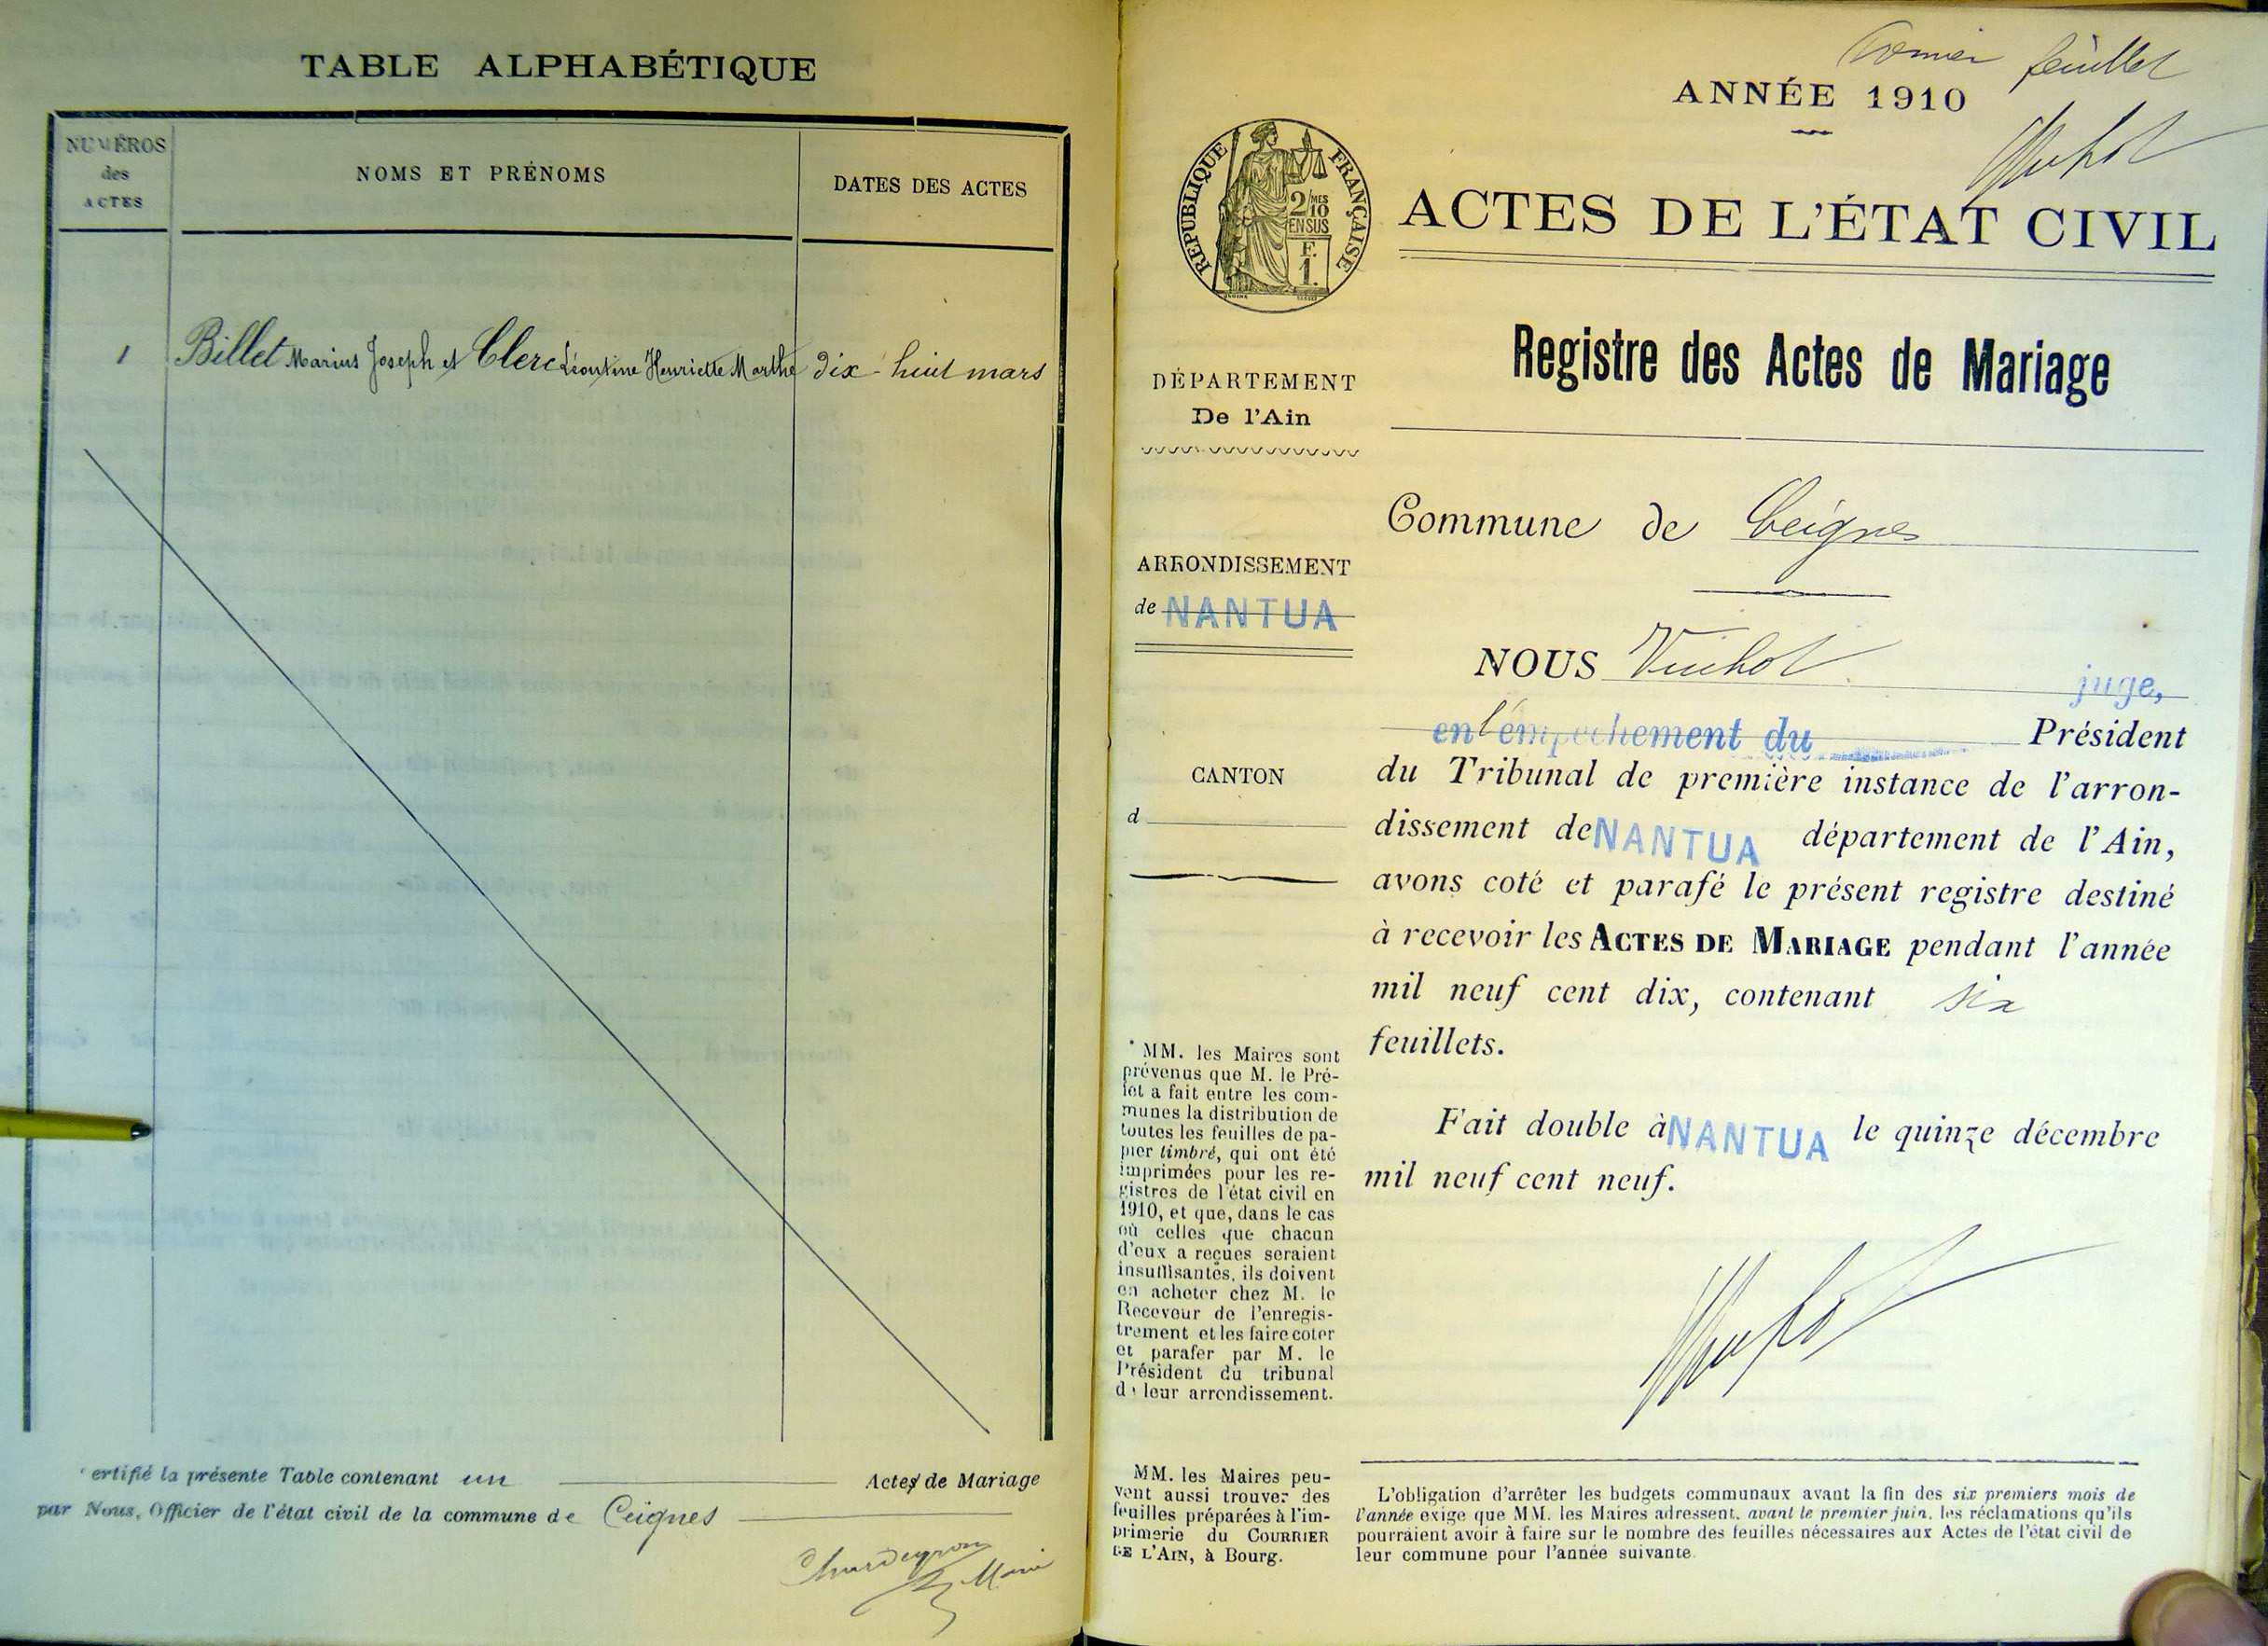 TABLE ALPHABÉTIQUE
NUMÉROS
des
ACTES
NOMS ET PRÉNOMS
DATES DES ACTES
1
Billet Marius Joseph et Clerc Léontine Henriette Marthe
dix-huit mars
Certifié la présente Table contenant un Actes de Mariage
par Nous, Officier de l'état civil de la commune de Ceignes
feuillet
ANNÉE 1910
RÉPUBLIQUE FRANÇAISE
2/MES
10
EN SUS
F.
1.
ACTES DE L'ÉTAT CIVIL
Registre des Actes de Mariage
DÉPARTEMENT
De l'Ain
Commune de Ceignes
ARRONDISSEMENT
de NANTUA
NOUS Vuihot juge,
en l'empechement du Président
du Tribunal de première instance de l'arron-
dissement de NANTUA département de l'Ain,
avons coté et parafé le présent registre destiné
à recevoir les ACTES DE MARIAGE pendant l'année
mil neuf cent dix, contenant six
feuillets.
CANTON
d
Fait double à NANTUA le quinze décembre
mil neuf cent neuf.
* MM. les Maires sont
prévenus que M. le Pré-
fet a fait entre les com-
munes la distribution de
toutes les feuilles de pa-
pier timbré, qui ont été
imprimées pour les re-
gistres de l'état civil en
1910, et que, dans le cas
où celles que chacun
d'eux a reçues seraient
insuffisantes, ils doivent
en acheter chez M. le
Receveur de l'enregis-
trement et les faire coter
et parafer par M. le
Président du tribunal
de leur arrondissement.
MM. les Maires peu-
vent aussi trouver des
feuilles préparées à l'im-
primerie du COURRIER
DE L'AIN, à Bourg.
L'obligation d'arrêter les budgets communaux avant la fin des six premiers mois de
l'année exige que MM. les Maires adressent, avant le premier juin, les réclamations qu'ils
pourraient avoir à faire sur le nombre des feuilles nécessaires aux Actes de l'état civil de
leur commune pour l'année suivante.